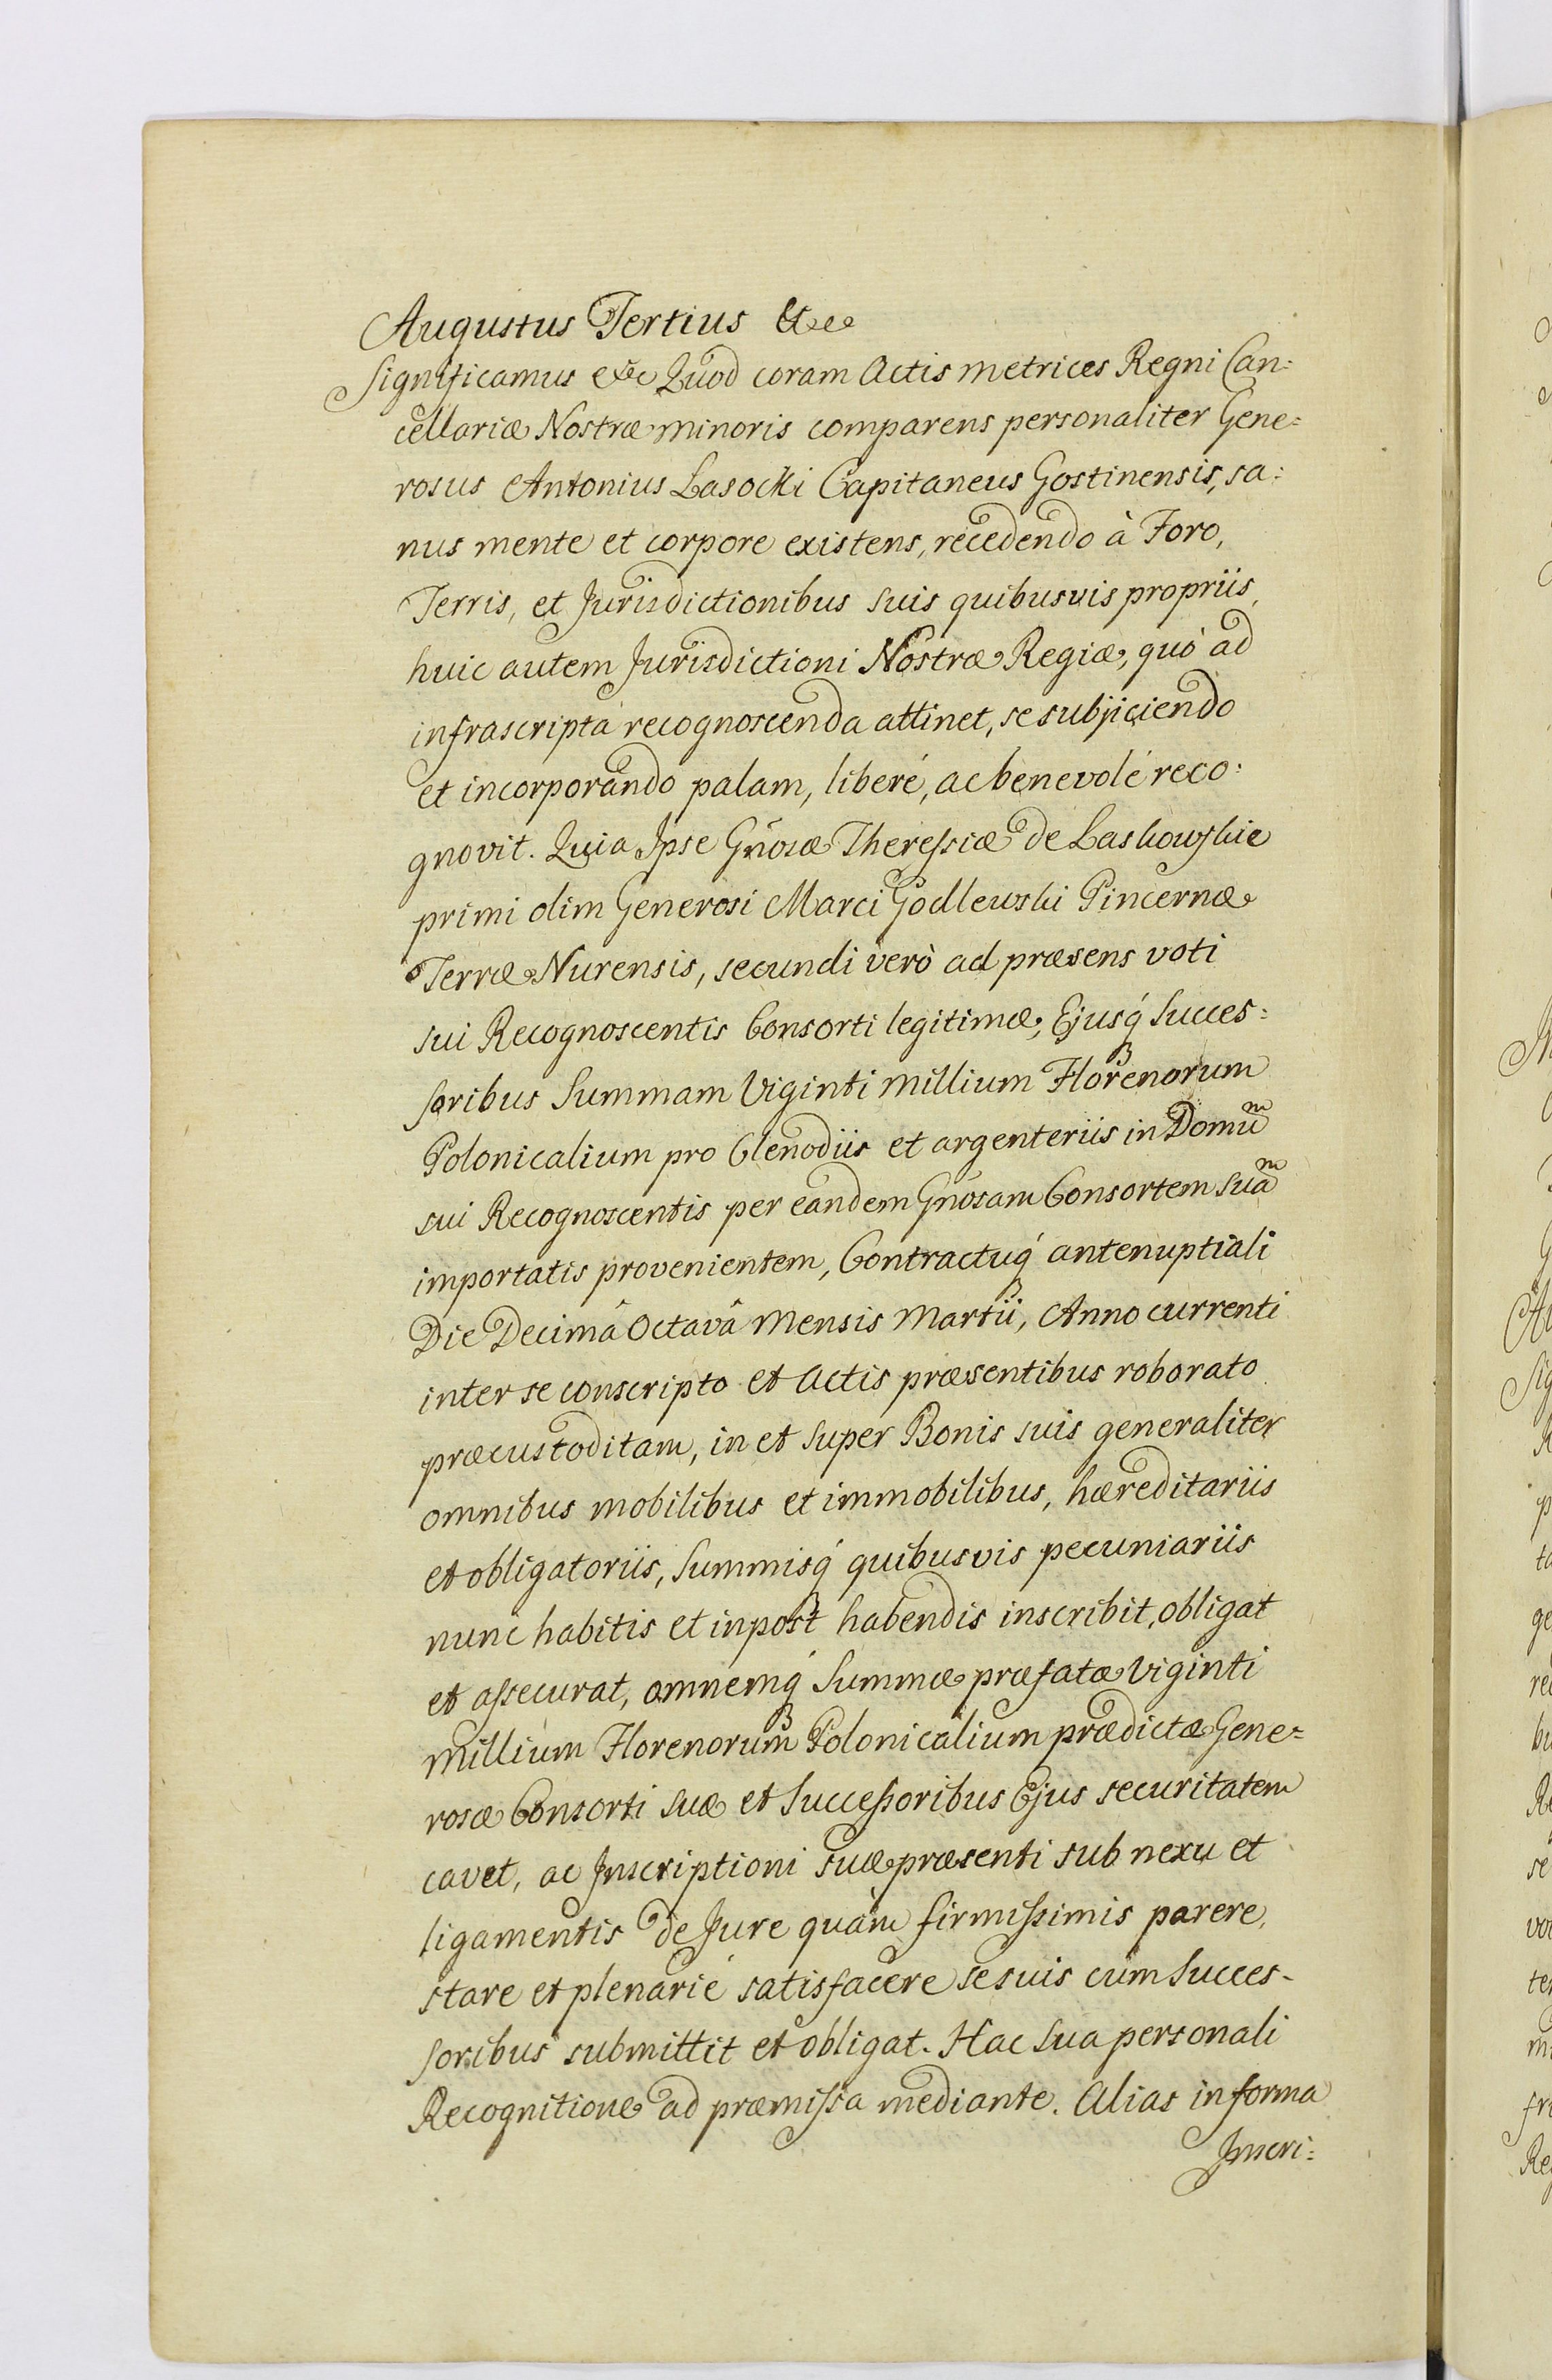 Augustus Tertius &cc
Significamus &c Quod coram Actis metrices Regni Can:
cellariæ Nostræ minoris comparens personaliter Gene:
rosus Antonius Lasocki Capitaneus Gostinensis, sa:
nus mente et corpore existens, recedendo à Foro,
Terris, et Jurisdictionibus suis quibusvis propriis,
huic autem Jurisdictioni Nostræ Regiæ, quò ad
infrascripta recognoscenda attinet, se subjiciendo
et incorporando palam, liberé, ac benevolé reco:
gnovit. Quia Ipse Gnosæ Theressiæ de Laskowskie
primi olim Generosi Marci Godlewski Pincernæ
Terræ Nurensis, secundi verò ad præsens voti
sui Recognoscentis Consorti legitimæ, Ejusq́ Succes:
soribus Summam Viginti millium Florenorum
Polonicalium pro Clenodiis et argenteriis in Domum
sui Recognoscentis per eandem Gnosam Consortem Suam
importatis provenientem, Contractuq́ antenuptiali
Die Decimâ Octavâ Mensis Martii, Anno currenti
inter se conscripto et Actis præsentibus roborato
præcustoditam, in et super Bonis suis generaliter
omnibus mobilibus et immobilibus, hæreditariis
et obligatoriis, Summisq́ quibusvis pecuniariis
nunc habitis et inpost habendis inscribit, obligat
et assecurat, omnemq́ Summæ præfatæ Viginti
millium Florenorum Polonicalium prædictæ Gene=
rosæ Consorti suæ et Successoribus Ejus securitatem
cavet, ac Inscriptioni suæ præsenti sub nexu et
ligamentis de Jure quàm firmissimis parere,
stare et plenarié satisfacere se suis cum Succes-
soribus submittit et obligat. Hac Sua personali
Recognitione ad præmissa mediante. Alias in forma
Inscri: